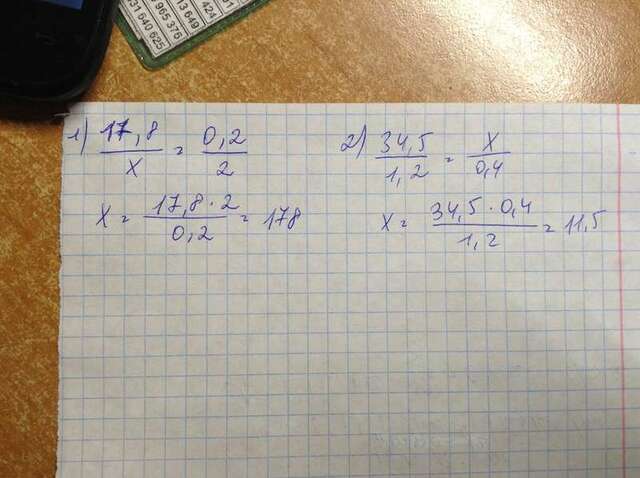 31 640 625
965 376
13 649
424
1) 17,8/x = 0,2/2
x = 17,8·2/0,2 = 178
2) 34,5/1,2 = x/0,4
x = 34,5·0,4/1,2 = 11,5